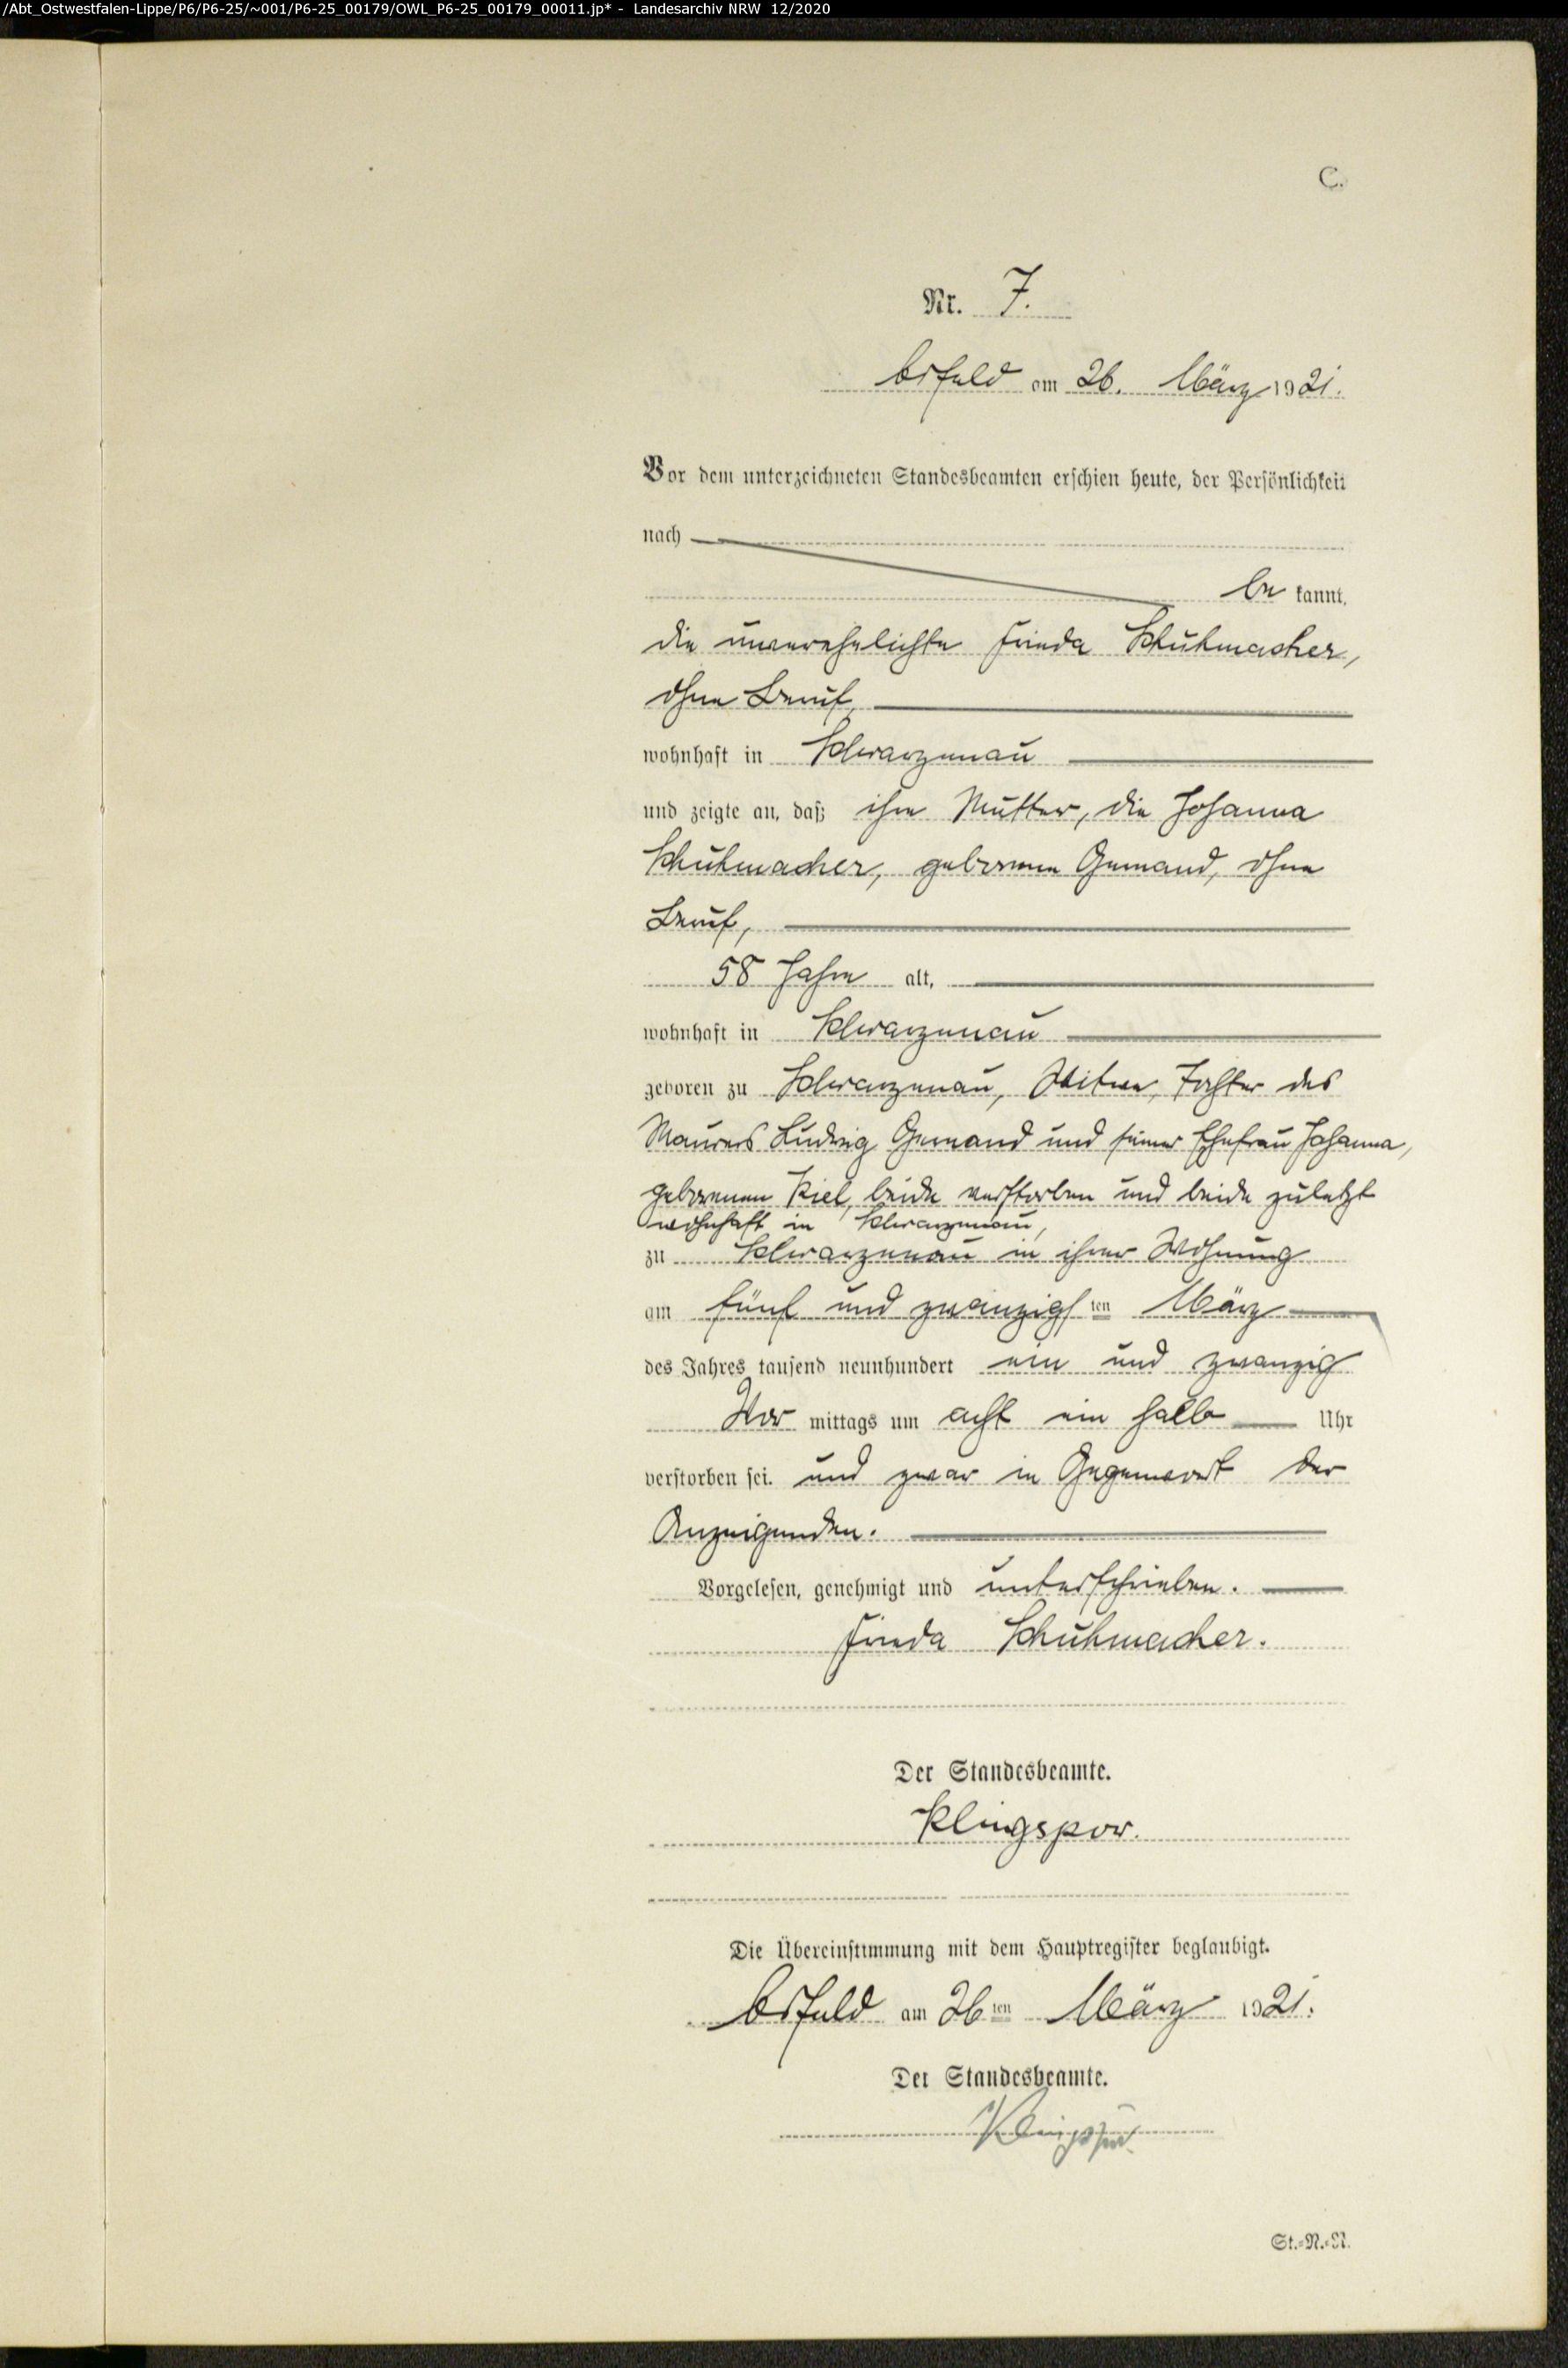 /Abt_Ostwestfalen-Lippe/P6/P6-25/~001/P6-25_00179/OWL_P6-25_00179_00011.jp* - Landesarchiv NRW 12/2020
C.
Nr. 7.
am 26. März 1921.
Vor dem unterzeichneten Standesbeamten erschien heute, der Persönlichkeit
nach
be kannt,
die unverehelichte Frieda Schuhmacher,
ohne Beruf,
wohnhaft in Schwarzenau
und zeigte an, daß ihre Mutter, die Johanna
Schuhmacher, geborenen Gernand, ohne
Beruf,
58 Jahre alt,
wohnhaft in Schwarzenau
geboren zu Schwarzenau, Witwe, Tochter des
Maurers Ludwig Gernand und seiner Ehefrau Johanna,
geborenen Kiel, beide verstorben und beide zuletzt
wohnhaft in Schwarzenau,
zu Schwarzenau in ihrer Wohnung
am fünf und zwanzigsten März
des Jahres tausend neunhundert ein und zwanzig
Vor mittags um acht ein halb Uhr
verstorben sei. und zwar in Gegenwart der
Anzeigenden.
Vorgelesen, genehmigt und unterschrieben.
Frieda Schuhmacher.
Der Standesbeamte.
Klingspor.
Die Übereinstimmung mit dem Hauptregister beglaubigt.
am 26ten März 1921.
Der Standesbeamte.
Klingspor
St.=R.=A.